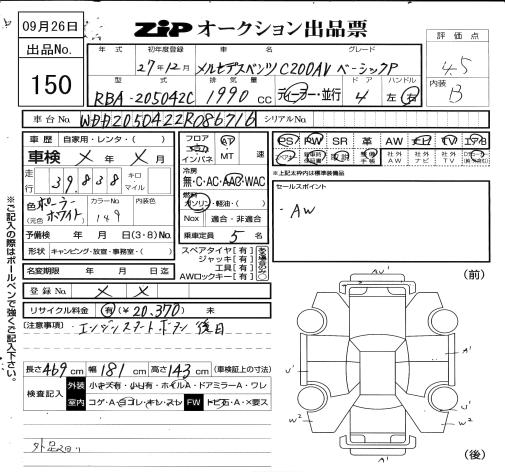 09月26日
ZiP オークション出品票
出品No.
150
年式 初年度登録 車名 グレード
27年12月 メルセデスベンツ C200AV ベーシックP
型式 排気量 ドア ハンドル
RBA-205042C 1990cc ディーラー・並行 4 左 右
評価点
4.5
内装
B
車台No. WDD2050422R086716 シリアルNo.
車歴 自家用・レンタ・( )
車検 × 年 × 月
走行 39,838 キロ マイル
色(元色) ポーラーホワイト カラーNo. 149 内装色
予備検 年 月 日(3・8)No.
形状 キャンピング・放宣・事務室・( )
名変期限 年 月 日迄
フロア インパネ AT MT 速
冷房 無・C・AC・AAC・WAC
燃料 ガソリン・軽油・( )
Nox 適合・非適合
乗車定員 5 名
スペアタイヤ【有】
ジャッキ【有】
工具【有】
AWロックキー【有】
PS PW SR 革 AW ナビ TV エアB
社外AW 社外ナビ 社外TV
※上記太枠内は標準装備品
セールスポイント
・AW
登録No. × ×
リサイクル料金 有(¥20,370) 未
【注意事項】 エンジンスタートボタン後日
長さ 469 cm 幅 181 cm 高さ 143 cm (車検証上の寸法)
検査記入 外装 小キズ有・小凹有・ホイルA・ドアミラーA・ワレ
室内 コゲ・A・ヨゴレ・キレ・スレ FW トビ石・A・×要ス
※ご記入の際はボールペンで強くご記入下さい。
(前)
AU'
A'
U'
U'
W2
W2
A'
(後)